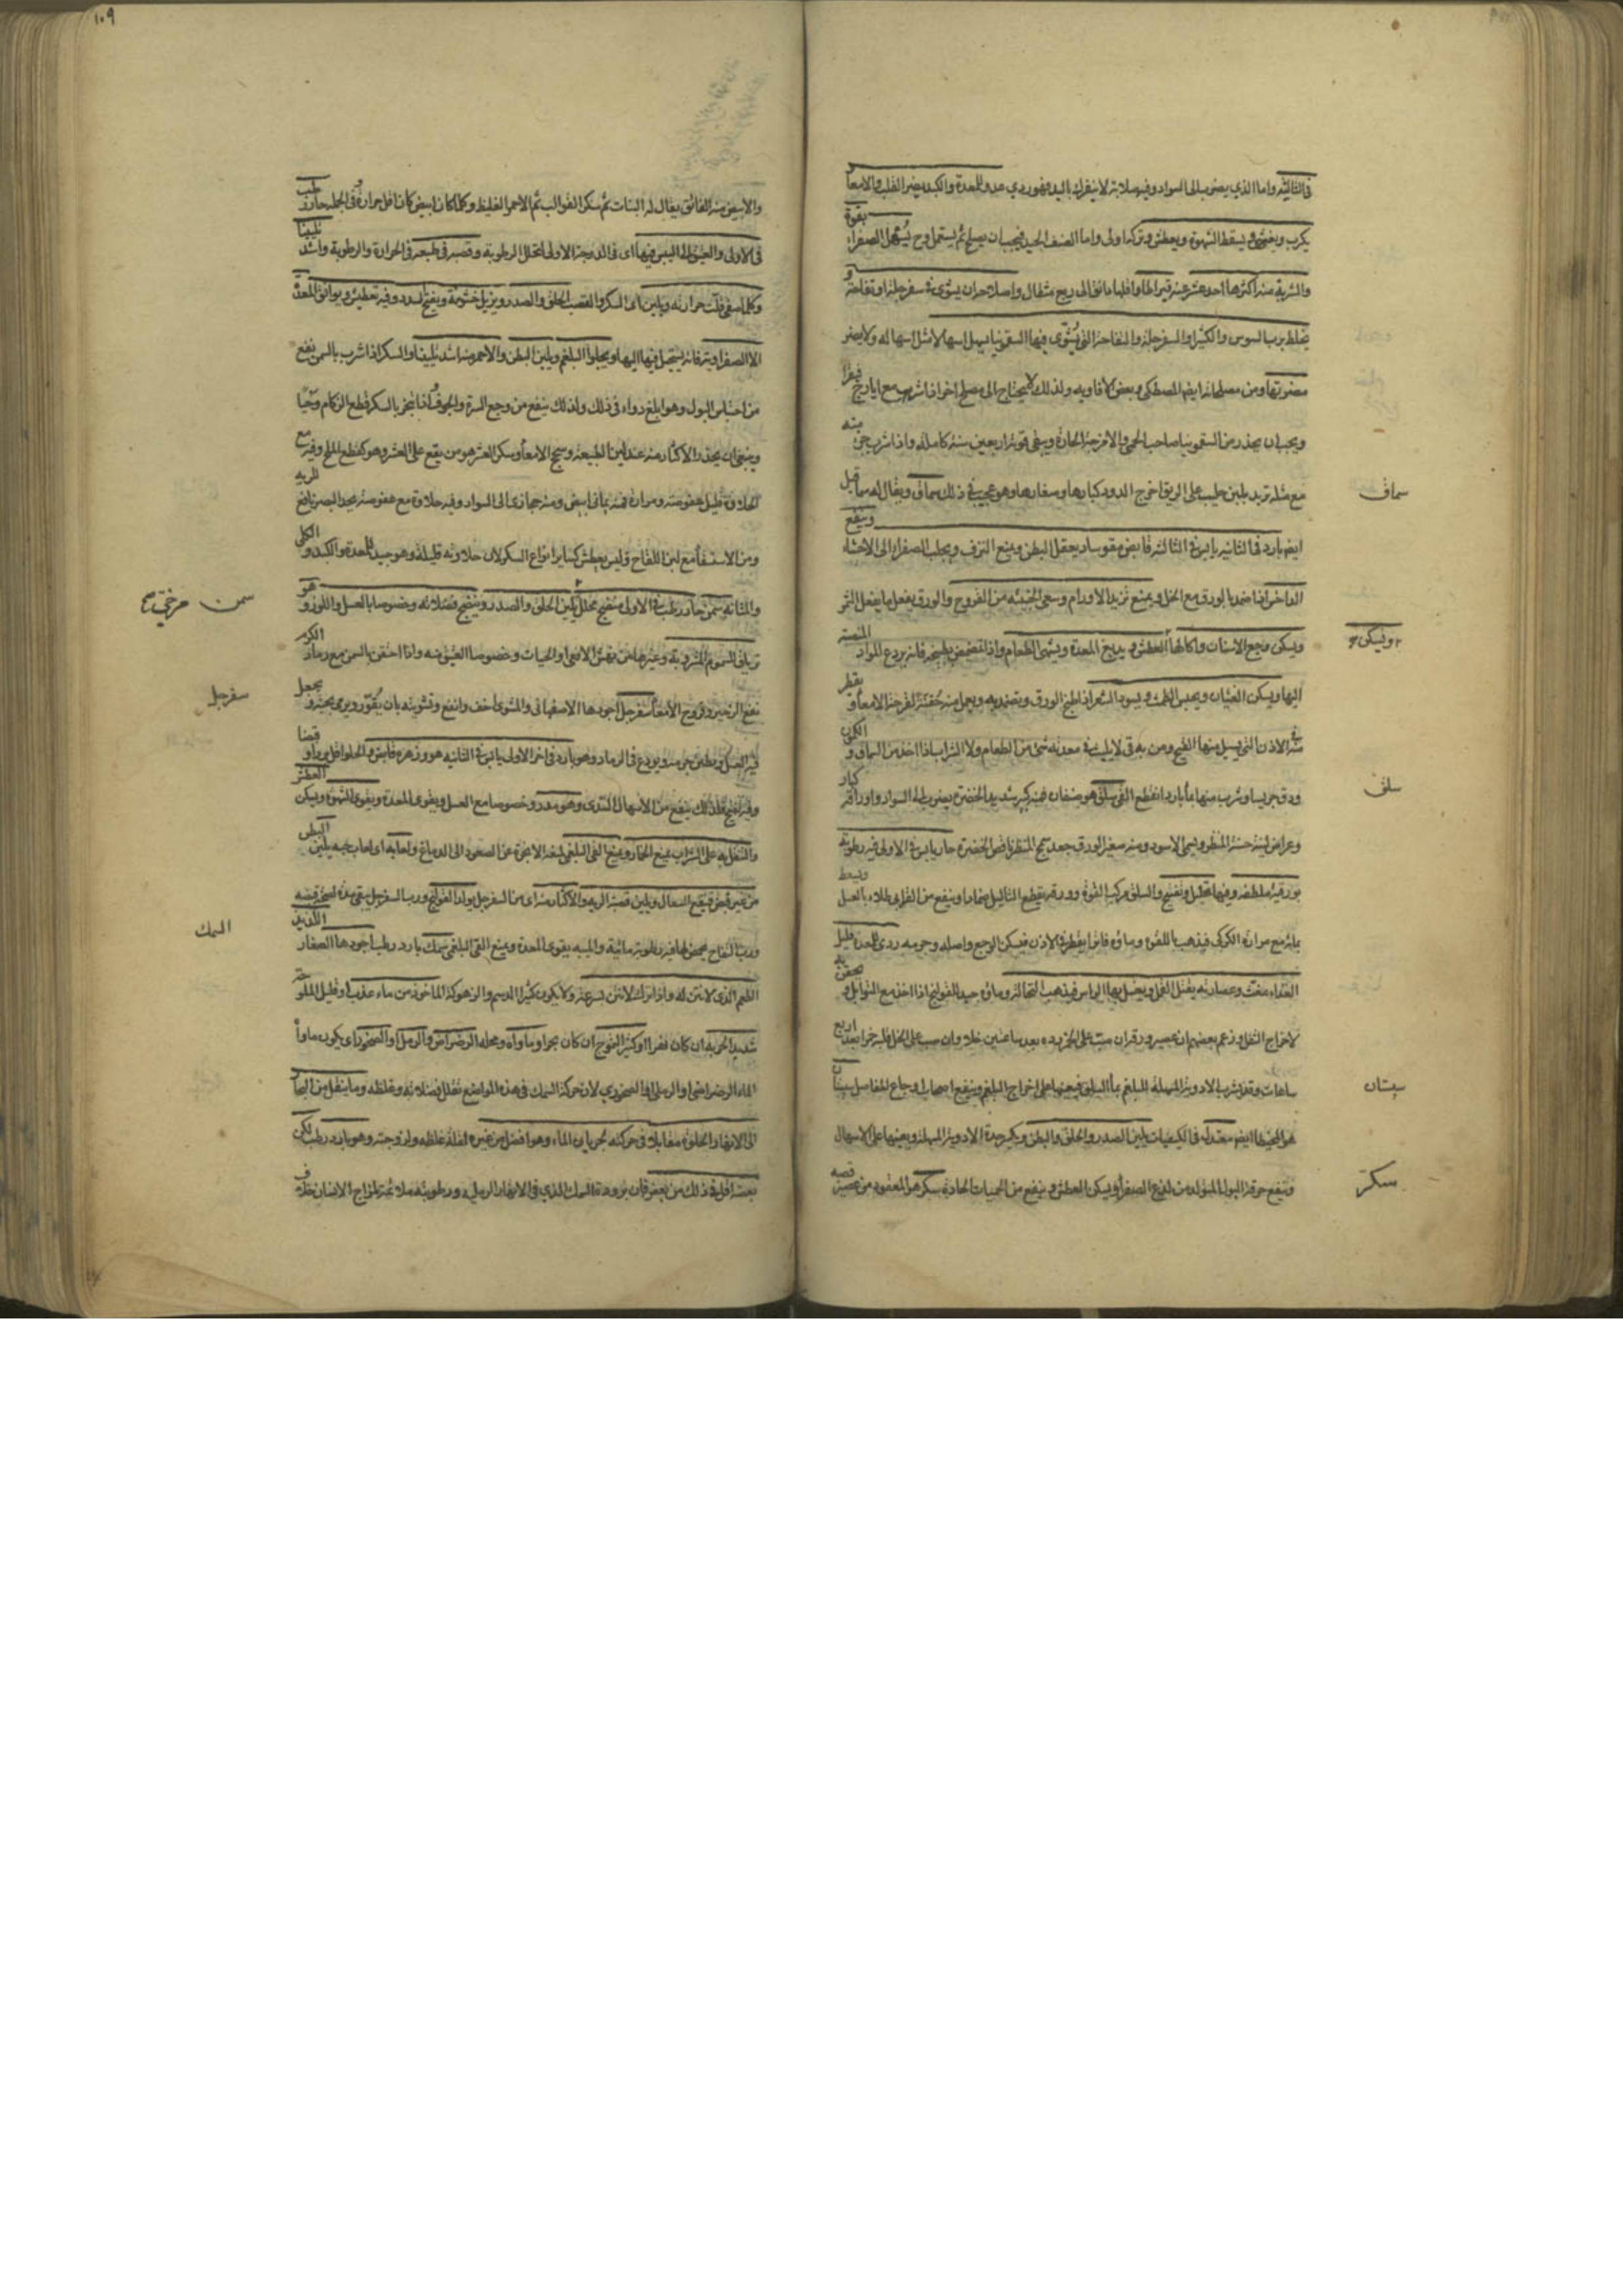 في الثالثة واما الذي يضرب الى السواد وفيه صلابة لا ينفرك باليد فهو ردي عدو للمعدة والكبد يضر القلب والامعا و
يكرب ويغثي ويسقط الشهوة ويعطش وتركه اولى واما الصنف الجيد فيجب ان يصلح ثم يستعمل وح يسهل الصفراء بقوة
والشربة منه اكثرها احد عشر قيراطا واقلها دانق الى ربع مثقال واصلاحه ان يشوى في سفرجلة او تفاحة و
يخلط برب السوس والكثيرا والسفرجلة والتفاحة التي يشوى فيها السقمونيا يسهل اسهالا مثل اسهاله ولا يضر
مضرتها ومن مصلحاته ايضا المصطكى وبعض الافاويه ولذلك لا يحتاج الى مصلح اخر اذا شرب مع ايارج فيقرا
ويجب ان يحذر من السقمونيا صاحب الحمى والامزجة الحارة ويبقى قوته اربعين سنة كاملة واذا شرب جزء منه
سماق
مع مثله تربد بلبن حليب على الريق اخرج الدود كبارها وصغارها وهو عجيب في ذلك سماق ويقال له سماقيل
ايضا بارد في الثانية يابس في الثالثة قابض مقو ساد يعقل البطن ويمنع النزف ويجلب الصفراء الى الاحشاء وينفع
الداحس اذا ضمد بالورق مع الخل ويمنع تزيد الاورام وسعي الخبيثة من القروح والورق يفعل ما يفعل الثمر
ويسكن
ويسكن وجع الاسنان واكالها العطش ويدبغ المعدة ويشهي الطعام واذا تمضمض بطبيخه فانه يردع المواد المنصبة
اليها ويسكن الغثيان ويحبس الطمث ويسود الشعر اذا طبخ الورق وتضمد به ويعمل منه حقنة لقرحة الامعاء و يقطر
في الاذن التي يسيل منها القيح ومن به قى لا يلبث في معدته شيء من الطعام ولا الشراب اذا اخذ من السماق و الكمون
سلق
ودق جريسا وشرب منها بماء بارد انقطع القى سلق هو صنفان فمنه كبير شديد الخضرة يضرب الى السواد واوراقه كبار
وعراض لينة حسنة المنظر ويسمى الاسود ومنه صغير الورق جعد سمج المنظر ناقص الخضرة حار يابس في الاولى فيه رطوبة
بورقية ملطفة وفيها تحليل وتفتيح والسلق مركب القوة وورقه يقطع الثآليل ضمادا وينفع من القوابي طلاء بالعسل
بمائه مع مرارة الكركي فيذهب باللقوة وماؤه فاترا يقطر في الاذن فيسكن الوجع واصله وجرمه ردى للمعدة قليل
الغذاء مغث وعصارته يقتل القمل ويغسل بها الراس فيذهب النخالة وماؤه جيد للقولنج اذا اخذ مع التوابل و يحقن به
لاخراج الثفل وزعم بعضهم ان عصير ورقه ان صب على الخمر بعد ساعتين خلا وان صب على الخل قلبه خمرا بعد اربع
سبستان
ساعات وقد يشرب الادوية المسهلة للبلغم بماء السلق فيعينها على اخراج البلغم وينفع اصحاب اوجاع المفاصل سبستان
هو المخيطا ايضا معتدلة في الكيفيات يلين الصدر والحلق والبطن ويكسر حدة الادوية المسهلة ويعينها على الاسهال
سكر
وينفع حرقة البول المتولدة من لذع الصفراء ويسكن العطش وينفع من الحميات الحادة سكر هو المعقود من عصير قصبه
١٠٩
والابيض منه الفائق يقال له النبات ثم سكر القوالب ثم الاحمر الغليظ وكلما كان ابيض كان اقل حرارة وفي الجملة حار رطب
في الاولى والعتيق الى اليبس فيها اى في الدرجة الاولى لتحلل الرطوبة وقصبه في طبعه في الحرارة والرطوبة واشد تليينا
وكلما صفي قلت حرارته ويلين اى السكر والقصب الحلق والصدر ويزيل خشونة ويفتح السدد وفيه تعطيش ويوافق المعدة
الا الصفراوية فانه يستحيل فيها اليها ويجلو البلغم ويلين البطن والاحمر منه اشد تليينا والسكر اذا شرب بالسمن نفع
من احتباس البول وهو ابلغ دواء في ذلك ولذلك ينفع من وجع السرة والجوف واذا تبخر بالسكر قطع الزكام وحيا
وينبغي ان يحذر الاكثار منه عند لين الطبيعة وسحج الامعاء وسكر العشر هو من يقع على العشر وهو كقطع الملح وفيه مع
الحلاوة قليل عفوصة ومرارة فمنه يماني ابيض ومنه حجازي الى السواد وفيه حلاوة مع عفوصة يحد البصر نافع للرية
ومن الاستسقاء مع لبن اللقاح وليس يعطش كسائر انواع السكر لان حلاوته قليلة وهو جيد للمعدة والكبد و الكلى
سمن
والمثانة سمن حار رطب في الاولى منضج محلل يلين الحلق والصدر وينضج فضلاته وخصوصا بالعسل واللوز و هو
ترياق السموم المشروبة وغيرها من نهش الافعى والحيات وخصوصا العتيق منه واذا احتقن بالسمن مع رماد الكرم
سفرجل
نفع الزحير وقروح الامعاء سفرجل اجودها الاصفهاني والمشوى اخف وانفع وتشويته بان يقور ويرمى بحبه و يجعل
فيه العسل ويطين جرمه ويودع في الرماد وهو بارد في اخر الاولى يابس في الثانية هو وزهره قابض والحلو اقل بردا و قبضا
وفيه تفتيح فلذلك ينفع من الاسهال السددى وهو مدر وخصوصا مع العسل ويقوى المعدة ويقوى الشهوة ويسكن العطش
والتنقل به على الشراب يمنع الخمار ويمنع القى البلغمي لمنعه الابخرة عن الصعود الى الدماغ ولعابه اى لعاب حبه يلين البطن
من غير قبض فينفع السعال ويلين قصبة الرية والاكثار منه اى من السفرجل يولد القولنج ورب السفرجل يبقى مدة لصحة قبضه
السمك
ورب التفاح يحمض لما فيه رطوبة مائية والميبه يقوى المعدة ويمنع القى البلغمي سمك بارد رطب اجودها الصغار اللذيذ
الطعم الذي لا نتن له واذا ترك لا ينتن بسرعة ولا يكون كثير الدسم والزهوكة الماخوذ من ماء عذب او قليل الملوحة
شديد الجرية ان كان نهرا او كثير التموج ان كان بحرا وماواه ومحله الرضراض والرمل او الصخور اى يكون ماوا
الماء الرضراضي او الرملي او الصخوري لان حركة السمك في هذه المواضع تقلل فضلاته وغلظه وما ينتقل من البحار
الى الانهار الحلوة مقابلا في حركته لجريان الماء وهو افضل من غيره لقلة غلظه ولزوجته وهو بارد رطب لكن
بعضه اقل في ذلك من بعض فان برودة السمك الذي في الانهار الرملية ورطوبته ملائمة لمزاج الانسان بخلاف